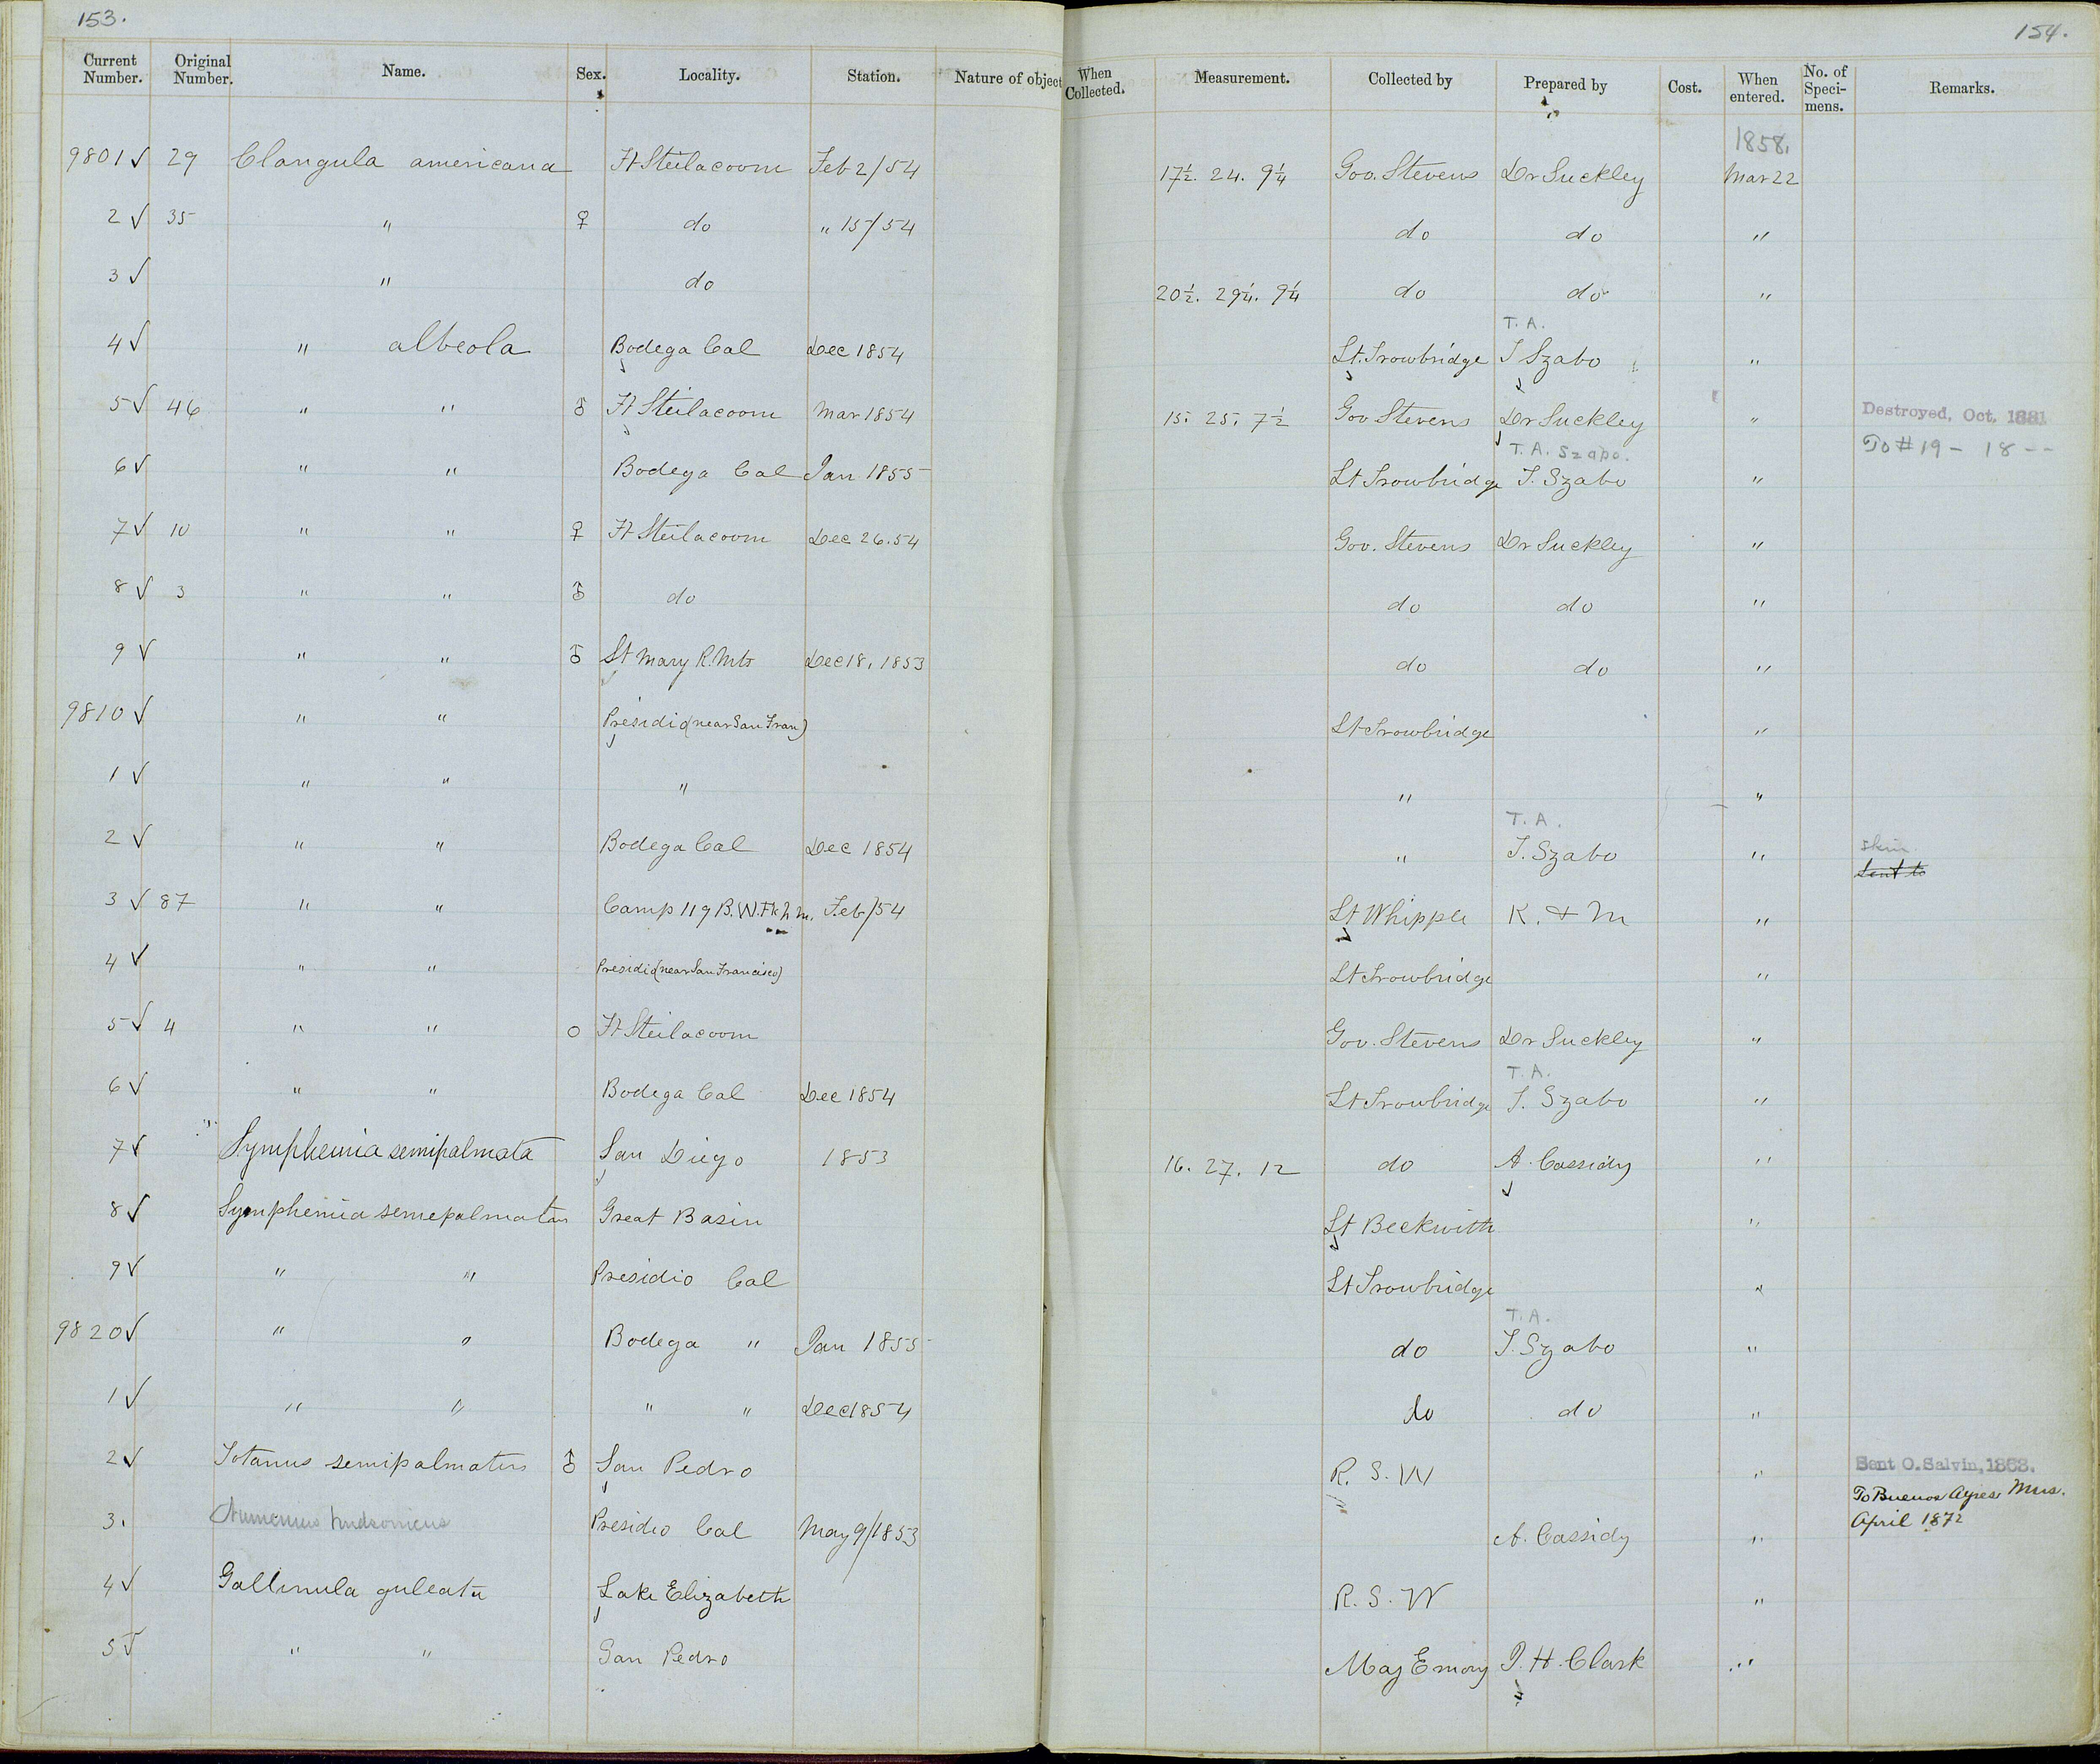 153.
154.
Current Number. Original Number. Name. Sex. Locality. Station. Nature of object When Collected. Measurement. Collected by Prepared by Cost. When entered. No. of Speci-mens. Remarks.
1858.
9801 √ 29 Clangula americana Ft Steilacoom Feb 2/54 17½. 24. 9¼ Gov. Stevens Dr Suckley Mar 22
2 √ 35 " ♀ do " 15/54 do do "
3 √ " do 20½. 29¼. 9¼ do do "
T. A.
4 √ " albeola Bodega Cal Dec 1854 Lt. Trowbridge T Szabo "
5 √ 46 " " ♂ Ft Steilacoom Mar 1854 15. 25. 7½ Gov Stevens Dr Suckley " Destroyed, Oct. 1881
T. A. Szabo. To # 19 - 18 --
6 √ " " Bodega Cal Jan 1855 Lt Trowbridge T. Szabo "
7 √ 10 " " ♀ Ft Steilacoom Dec 26.54 Gov. Stevens Dr Suckley "
8 √ 3 " " ♂ do do do "
9 √ " " ♂ St Mary R. Mts Dec 18, 1853 do do "
9810 √ " " Presidio (near San Fran) Lt Trowbridge "
1 √ " " " " "
T. A.
2 √ " " Bodega Cal Dec 1854 " T. Szabo " skin
Sent to
3 √ 87 " " Camp 119 B. W. Fk h m. Feb/54 Lt Whipple K. & M "
4 √ " " Presidio (near San Francisco) Lt Trowbridge "
5 √ 4 " " ○ Ft Steilacoom Gov. Stevens Dr Suckley "
T. A.
6 √ " " Bodega Cal Dec 1854 Lt Trowbridge T. Szabo "
7 √ Symphemia semipalmata San Diego 1853 16. 27. 12 do A. Cassidy "
8 √ Symphemia semepalmatus Great Basin Lt Beckwith "
9 √ " " Presidio Cal Lt Trowbridge "
T. A.
9820 √ " " Bodega " Jan 1855 do T. Szabo "
1 √ " " " " Dec 1854 do do "
2 √ Totanus semipalmatus ♂ San Pedro R. S. W " Sent O. Salvin, 1863.
To Buenos Ayres Mus.
April 1872
3. Numenius hudsonicus Presidio Cal May 9/1853 A. Cassidy "
4 √ Gallinula galeata Lake Elizabeth R. S. W "
5 √ " " San Pedro Maj Emory J. H. Clark "